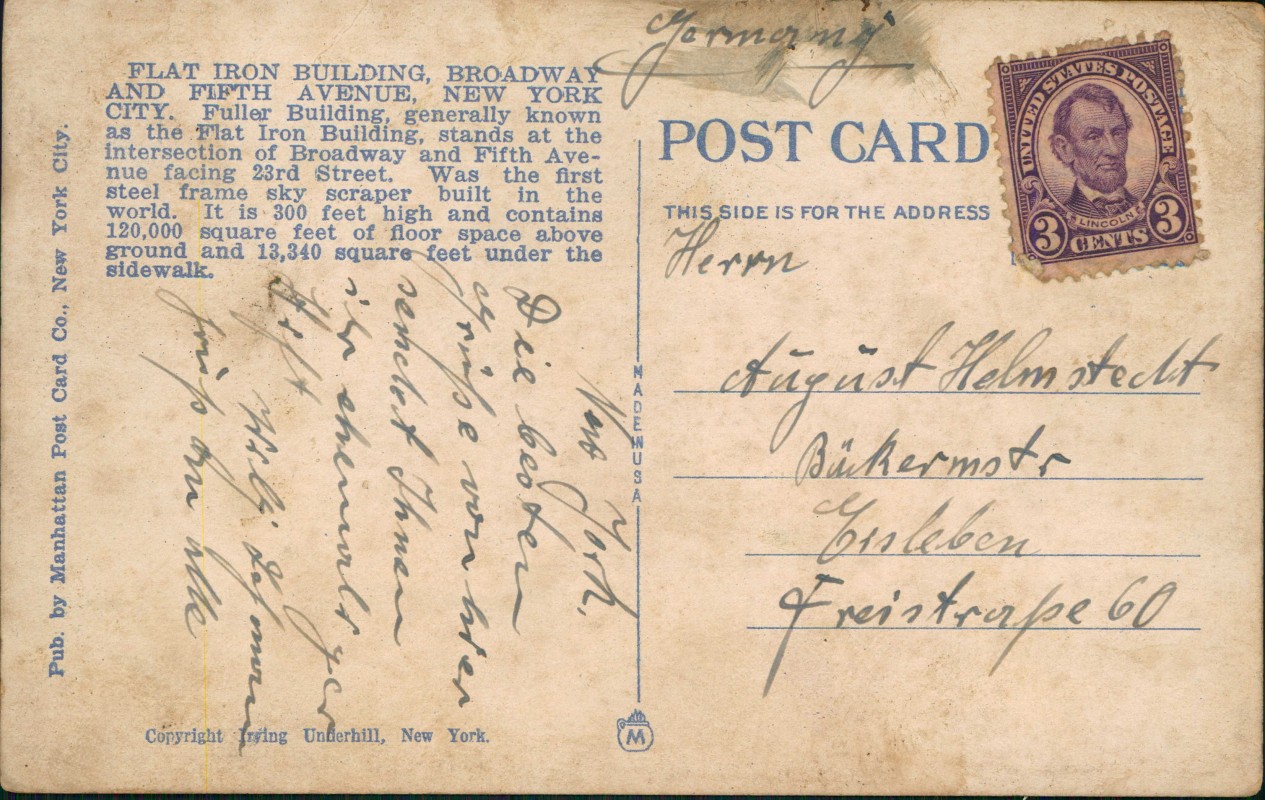 FLAT IRON BUILDING, BROADWAY
AND FIFTH AVENUE, NEW YORK
CITY. Fuller Building, generally known
as the Flat Iron Building, stands at the
intersection of Broadway and Fifth Ave-
nue facing 23rd Street. Was the first
steel frame sky scraper built in the
world. It is 300 feet high and contains
120,000 square feet of floor space above
ground and 13,340 square feet under the
sidewalk.
Pub. by Manhattan Post Card Co., New York City.
New York,
Die besten
Grüße von hier
sendet Ihnen
ihr ehemaliger
Willi
Gruß an alle
Copyright Irving Underhill, New York.
MADE IN USA
M
Germany
POST CARD
THIS SIDE IS FOR THE ADDRESS
UNITED STATES POSTAGE
LINCOLN
3 CENTS 3
Herrn
August Helmstedt
Bäckermstr
Eisleben
Freistraße 60